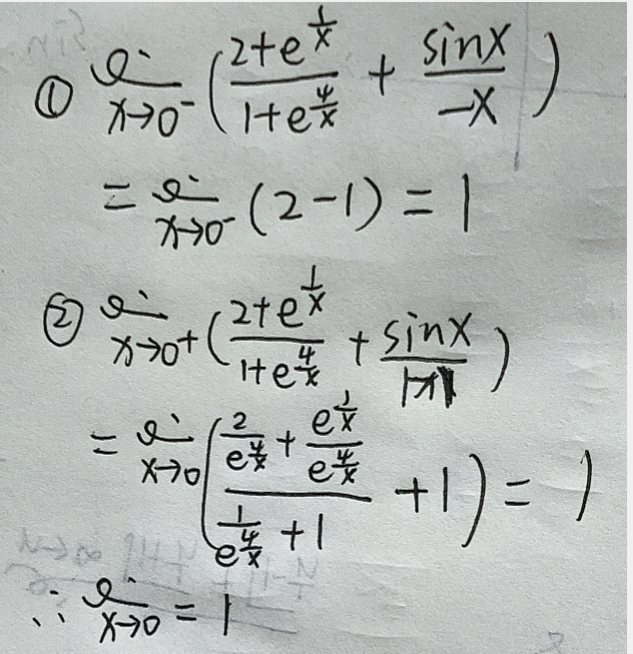 ① lim x→0⁻ ( (2+e^(1/x))/(1+e^(4/x)) + sinx/(-x) )
= lim x→0⁻ (2-1) = 1
② lim x→0⁺ ( (2+e^(1/x))/(1+e^(4/x)) + sinx/|x| )
= lim x→0 ( (2/e^(4/x) + e^(1/x)/e^(4/x))/(1/e^(4/x) + 1) + 1 ) = 1
∴ lim x→0 = 1